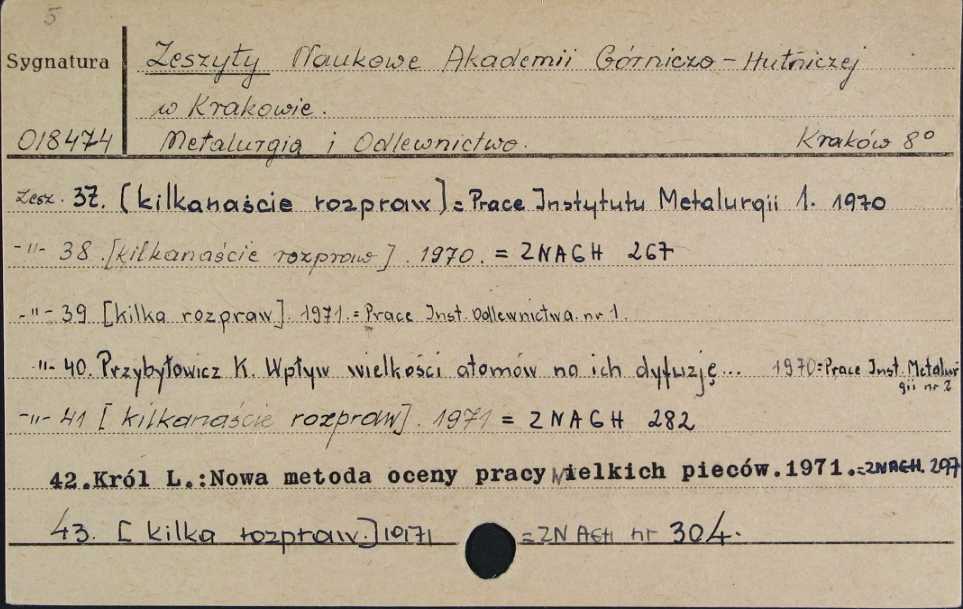 5
Sygnatura Zeszyty Naukowe Akademii Górniczo-Hutniczej
w Krakowie.
018474 Metalurgia i Odlewnictwo. Kraków 8°
Zesz. 37. [kilkanaście rozpraw] = Prace Instytutu Metalurgii 1. 1970
-"- 38. [kilkanaście rozpraw]. 1970. = ZNAGH 267
-"- 39 [kilka rozpraw]. 1971. = Prace Inst. Odlewnictwa. nr 1.
"- 40. Przybyłowicz K. Wpływ wielkości atomów na ich dyfuzję... 1970 = Prace Inst. Metalur
gii nr 2
-"- 41 [kilkanaście rozpraw]. 1971 = ZNAGH 282
42. Król L.: Nowa metoda oceny pracy wielkich pieców. 1971. = ZNAGH. 297
43. [kilka rozpraw.] 1971 = ZNAGH nr 304.